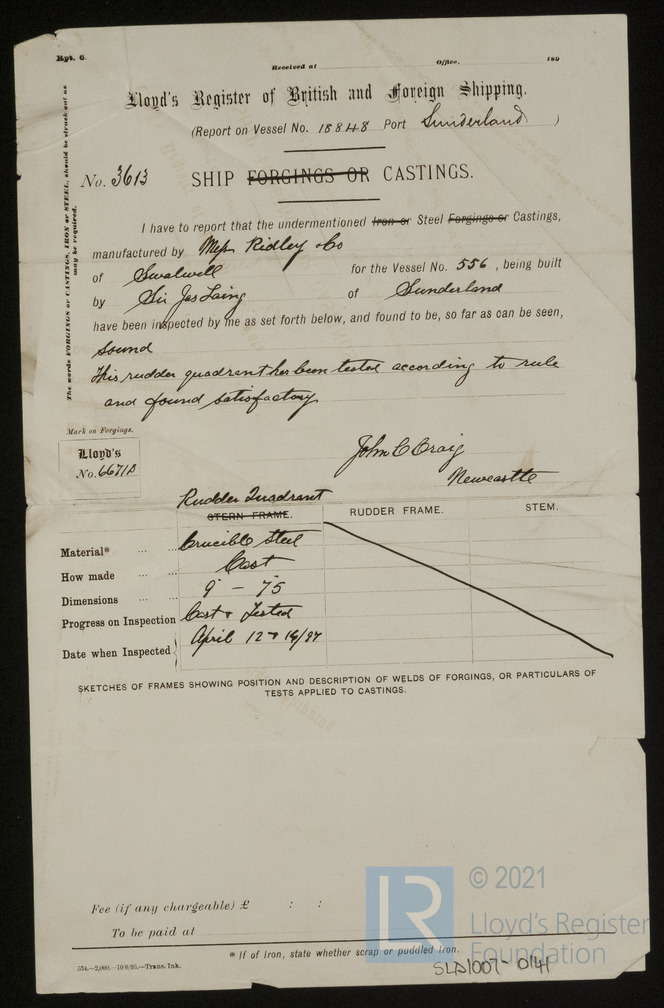 Rpt. 6.
Received at Office, 189
Lloyd's Register of British and Foreign Shipping.
(Report on Vessel No. 18848 Port Sunderland )
No. 3613 SHIP FORGINGS OR CASTINGS.
The words FORGINGS or CASTINGS, IRON or STEEL, should be struck out as
may be required.
I have to report that the undermentioned Iron or Steel Forgings or Castings,
manufactured by Mess Ridley & Co
of Swalwell for the Vessel No. 556, being built
by Sir Jas Laing of Sunderland
have been inspected by me as set forth below, and found to be, so far as can be seen,
sound
This rudder quadrant has been tested according to rule
and found satisfactory
Mark on Forgings.
Lloyd's
No. 6671B
John C Craig
Newcastle
Rudder Quadrant
STERN FRAME. RUDDER FRAME. STEM.
Material* ... ... Crucible Steel
How made ... Cast
Dimensions ... ... 9" - 75
Progress on Inspection Cast & Tested
Date when Inspected April 12 & 16/97
SKETCHES OF FRAMES SHOWING POSITION AND DESCRIPTION OF WELDS OF FORGINGS, OR PARTICULARS OF
TESTS APPLIED TO CASTINGS.
Fee (if any chargeable) £ : :
To be paid at
* If of Iron, state whether scrap or puddled Iron.
554.—2,000.—10/8/95.—Trans. Ink.
SLD1007-0141
LR
© 2021
Lloyd's Register
Foundation